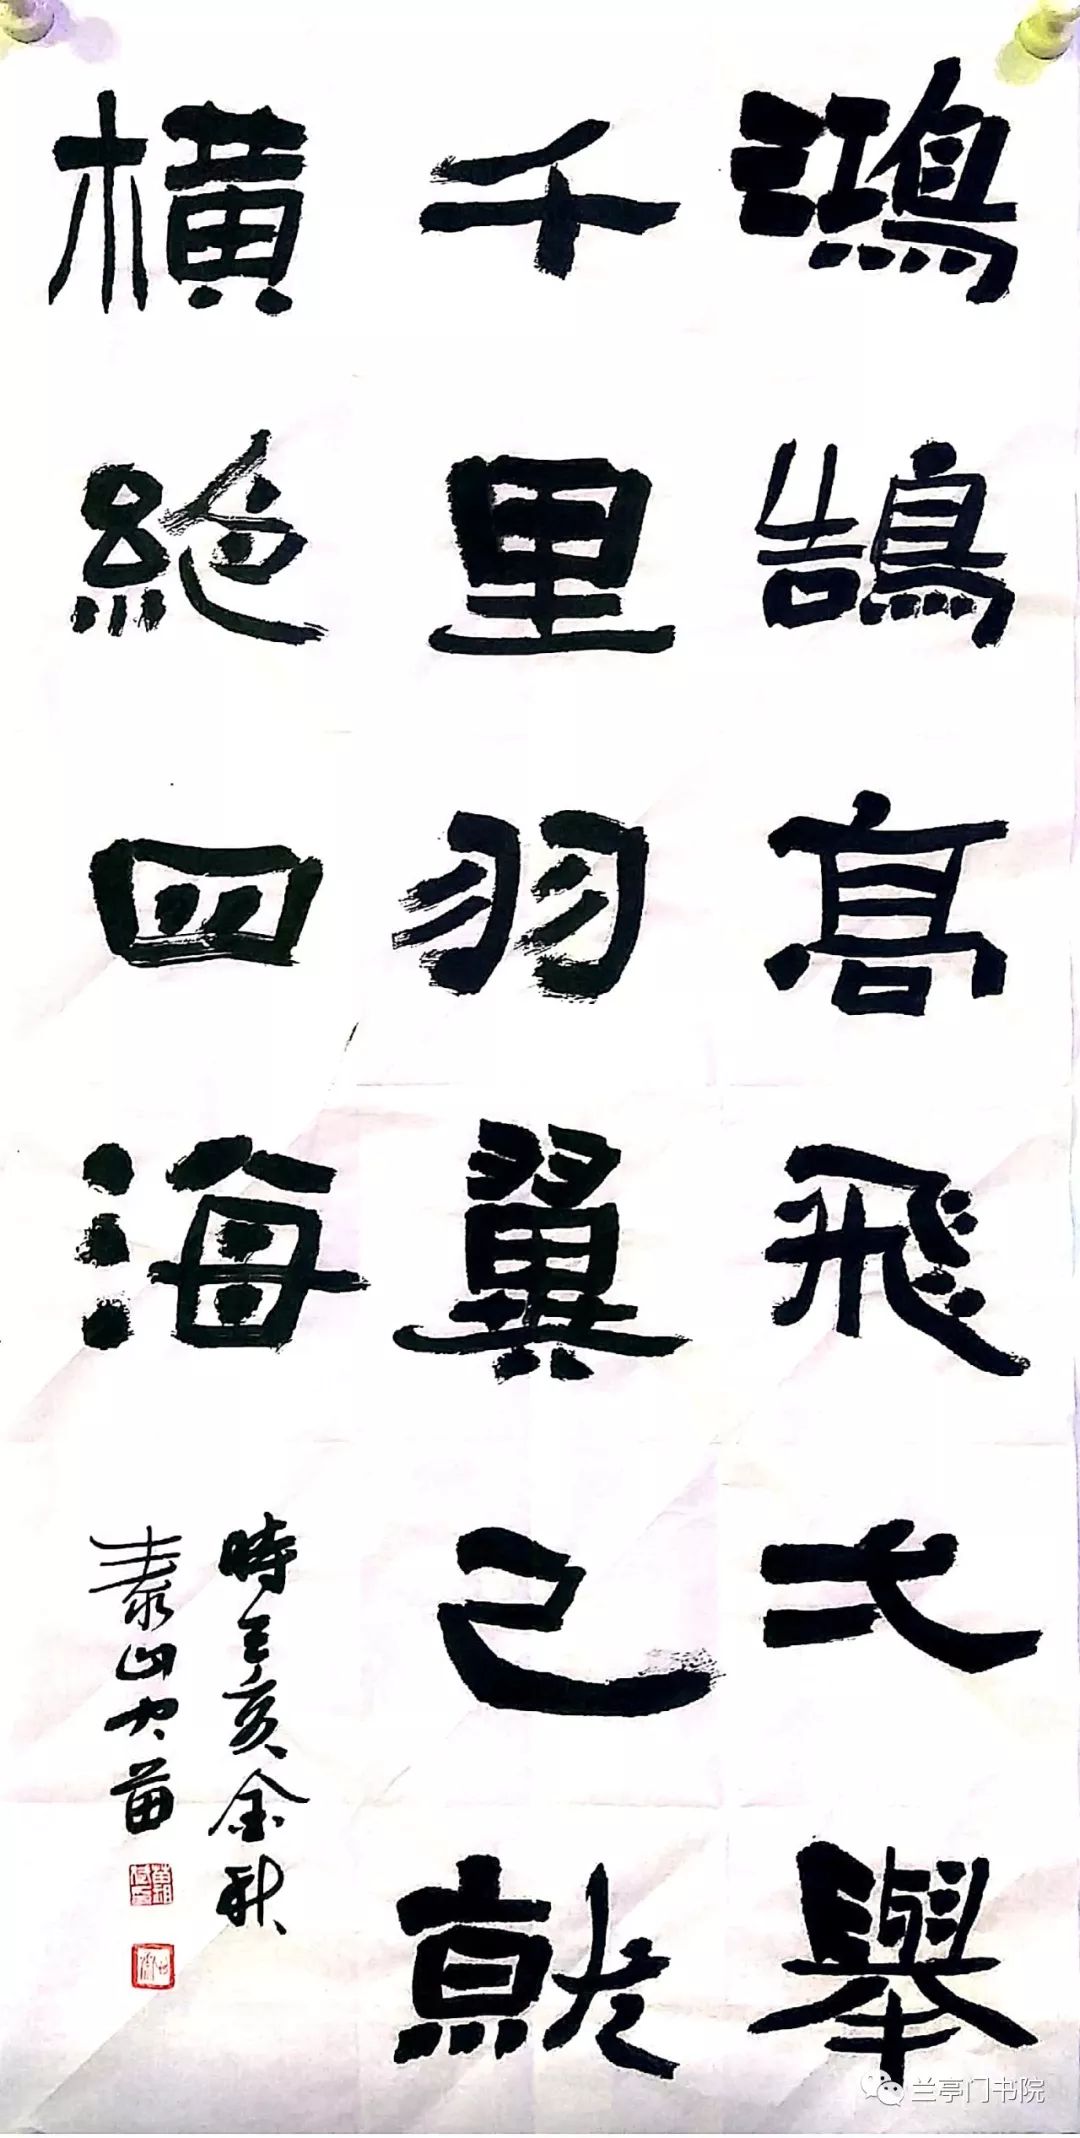 鴻鵠髙飛弌舉
千里羽翼已就
橫絕四海
時己亥金秋
泰山 苗
兰亭门书院